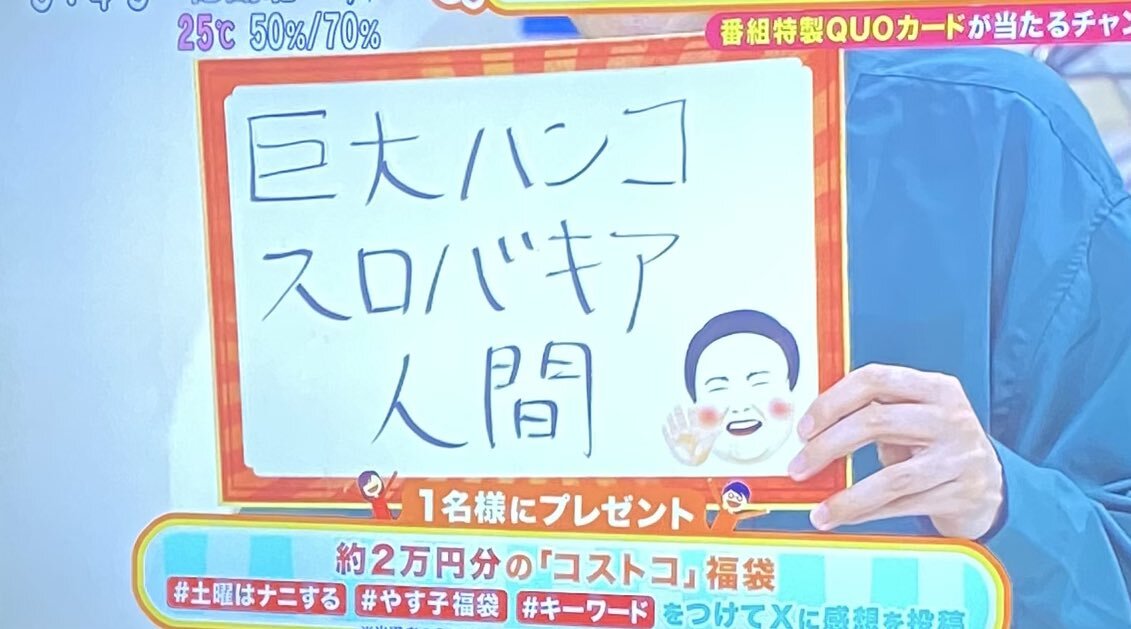 25℃ 50%/70%
番組特製QUOカードが当たるチャン
巨大ハンコ
スロバキア
人間
1名様にプレゼント
約2万円分の「コストコ」福袋
#土曜はナニする #やす子福袋 #キーワード をつけてXに感想を投稿